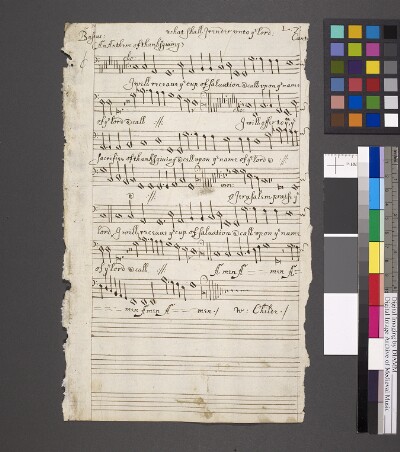 what shall I render unto yᵉ lord.
Bassus:
An Antheme of thanksgiving:
cho:
I will receaue yᵉ cup of saluation & call upon yᵉ name
of yᵉ lord & call :||: I will offer to yᵉ yᵉ
sacrifice of thanksgiuing & call upon yᵉ name of yᵉ lord &
& :||: o Jerusalem praise yᵉ
lord, I will receaue yᵉ cup of saluation & call upon yᵉ name
of yᵉ lord & call :||: A men A - - men A -
- - - - men A men A - - men :/ W: Childe :/
Digital Imaging by DIAMM
Digital Image Archive of Medieval Music